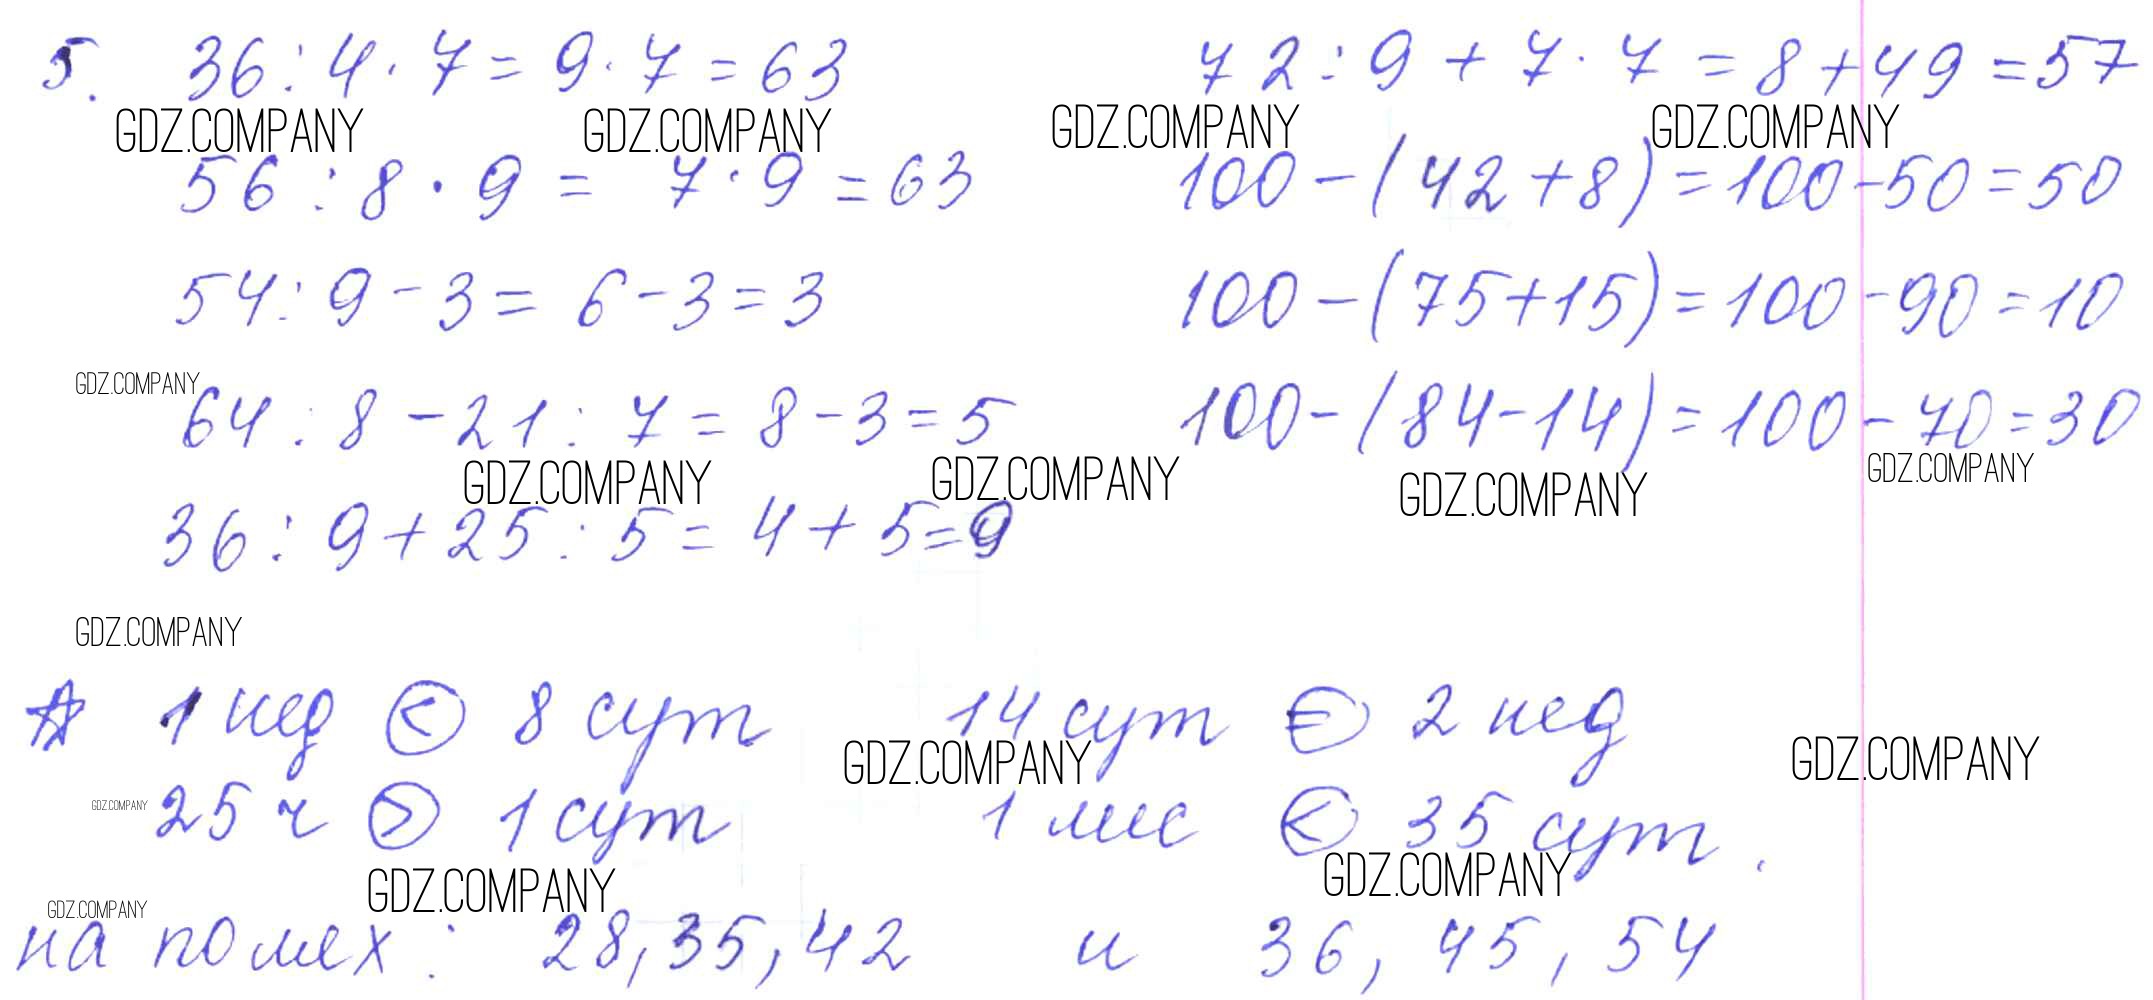 5. 36 : 4 · 7 = 9 · 7 = 63 72 : 9 + 7 · 7 = 8 + 49 = 57
GDZ.COMPANY GDZ.COMPANY GDZ.COMPANY GDZ.COMPANY
56 : 8 · 9 = 7 · 9 = 63 100 - (42 + 8) = 100 - 50 = 50
54 : 9 - 3 = 6 - 3 = 3 100 - (75 + 15) = 100 - 90 = 10
GDZ.COMPANY
64 : 8 - 21 : 7 = 8 - 3 = 5 100 - (84 - 14) = 100 - 70 = 30
GDZ.COMPANY GDZ.COMPANY GDZ.COMPANY GDZ.COMPANY
36 : 9 + 25 : 5 = 4 + 5 = 9
GDZ.COMPANY
1 нед < 8 сут 14 сут = 2 нед
GDZ.COMPANY GDZ.COMPANY
GDZ.COMPANY
25 ч > 1 сут 1 мес < 35 сут.
GDZ.COMPANY GDZ.COMPANY
GDZ.COMPANY
на полях: 28, 35, 42 и 36, 45, 54